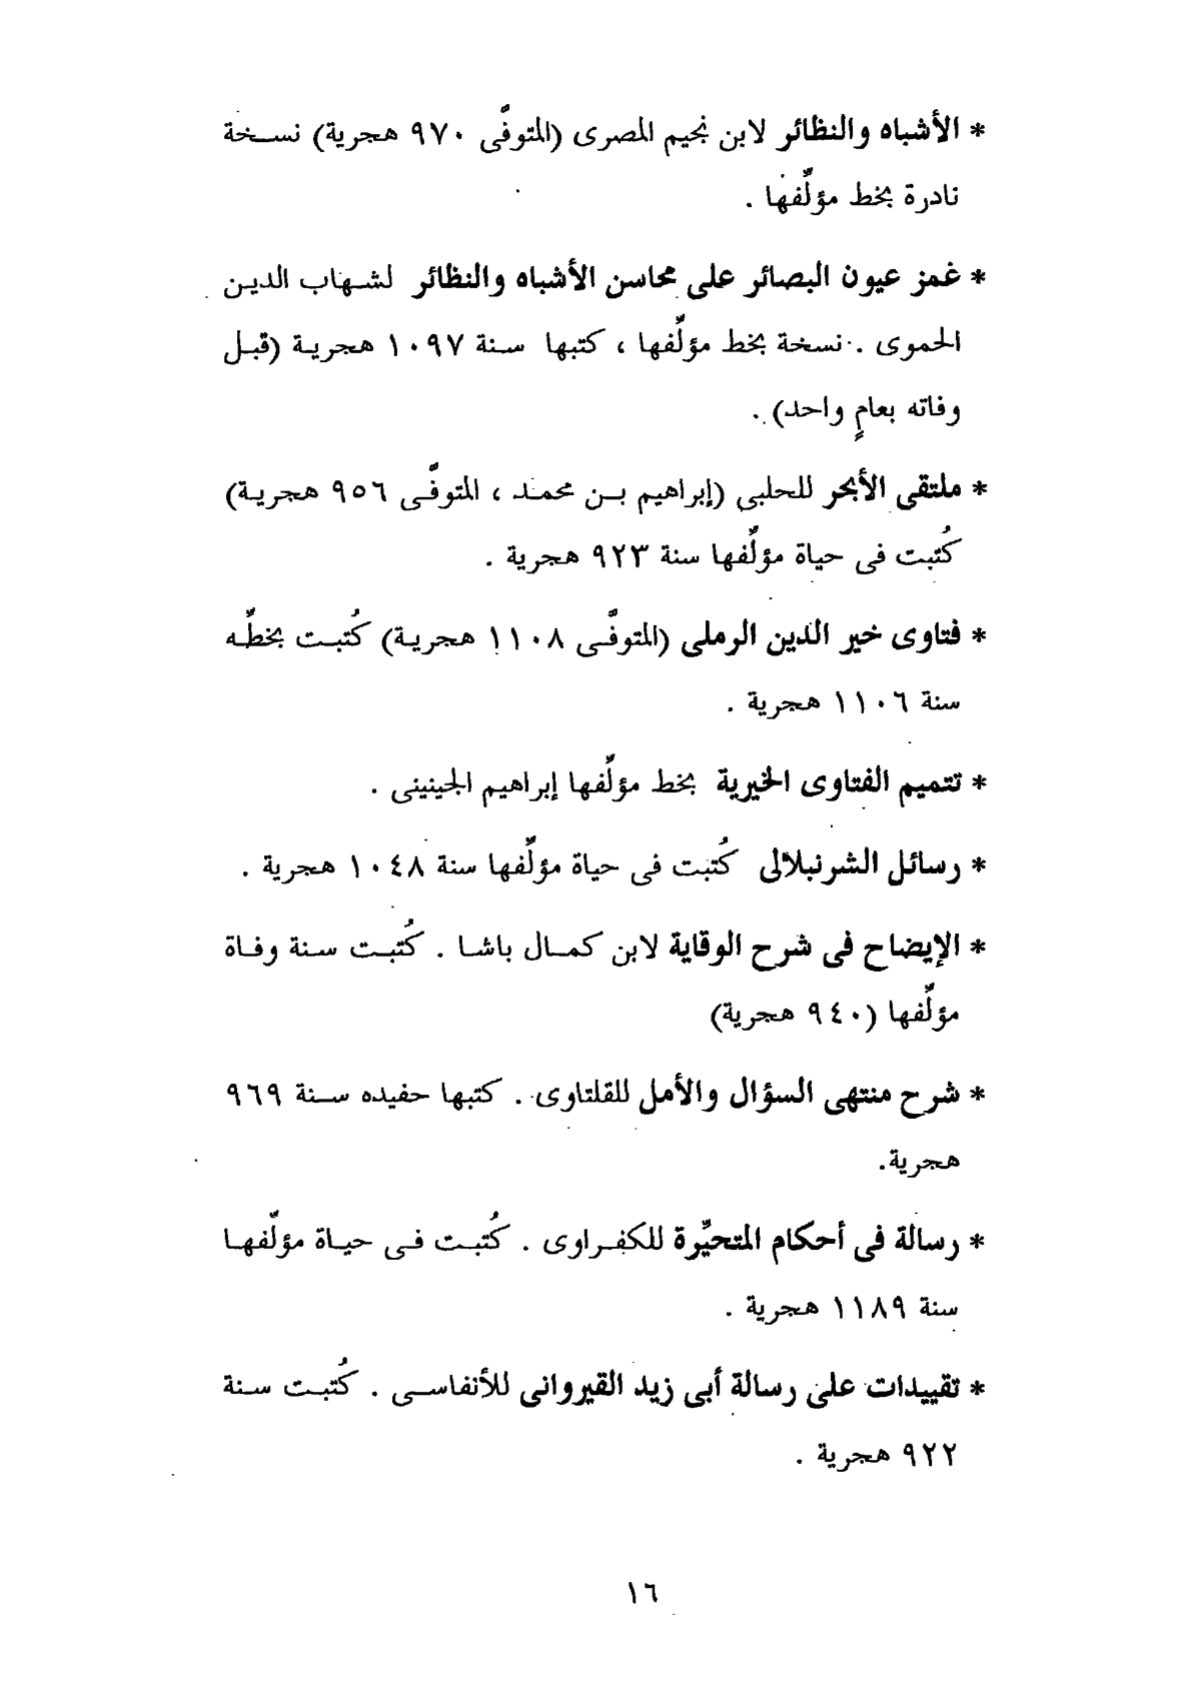 * الأشباه والنظائر لابن نجيم المصرى (المتوفَّى ٩٧٠ هجرية) نسخة
نادرة بخط مؤلِّفها .
* غمز عيون البصائر على محاسن الأشباه والنظائر لشهاب الدين
الحموى . نسخة بخط مؤلِّفها ، كتبها سنة ١٠٩٧ هجرية (قبل
وفاته بعامٍ واحد) .
* ملتقى الأبحر للحلبى (إبراهيم بن محمد ، المتوفَّى ٩٥٦ هجرية)
كُتبت فى حياة مؤلِّفها سنة ٩٢٣ هجرية .
* فتاوى خير الدين الرملى (المتوفَّى ١١٠٨ هجرية) كُتبت بخطِّه
سنة ١١٠٦ هجرية .
* تتميم الفتاوى الخيرية بخط مؤلِّفها إبراهيم الجينينى .
* رسائل الشرنبلالى كُتبت فى حياة مؤلِّفها سنة ١٠٤٨ هجرية .
* الإيضاح فى شرح الوقاية لابن كمال باشا . كُتبت سنة وفاة
مؤلِّفها (٩٤٠ هجرية)
* شرح منتهى السؤال والأمل للقلتاوى . كتبها حفيده سنة ٩٦٩
هجرية.
* رسالة فى أحكام المتحيِّرة للكفراوى . كُتبت فى حياة مؤلِّفها
سنة ١١٨٩ هجرية .
* تقييدات على رسالة أبى زيد القيروانى للأنفاسى . كُتبت سنة
٩٢٢ هجرية .
١٦